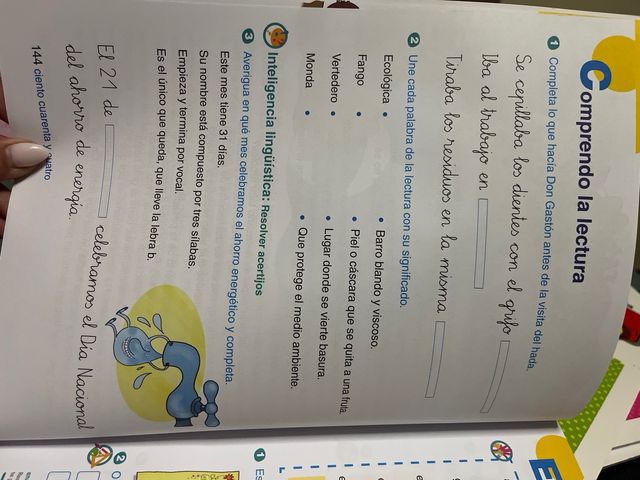 Comprendo la lectura
1 Completa lo que hacía Don Gastón antes de la visita del hada.
Se cepillaba los dientes con el grifo
Iba al trabajo en
Tiraba los residuos en la misma
2 Une cada palabra de la lectura con su significado.
Ecológica • • Barro blando y viscoso.
Fango • • Piel o cáscara que se quita a una fruta.
Vertedero • • Lugar donde se vierte basura.
Monda • • Que protege el medio ambiente.
Inteligencia lingüística: Resolver acertijos
3 Averigua en qué mes celebramos el ahorro energético y completa.
Este mes tiene 31 días.
Su nombre está compuesto por tres sílabas.
Empieza y termina por vocal.
Es el único que queda, que lleve la letra b.
El 21 de celebramos el Día Nacional
del ahorro de energía.
144 ciento cuarenta y cuatro
E
1 Es
2 O